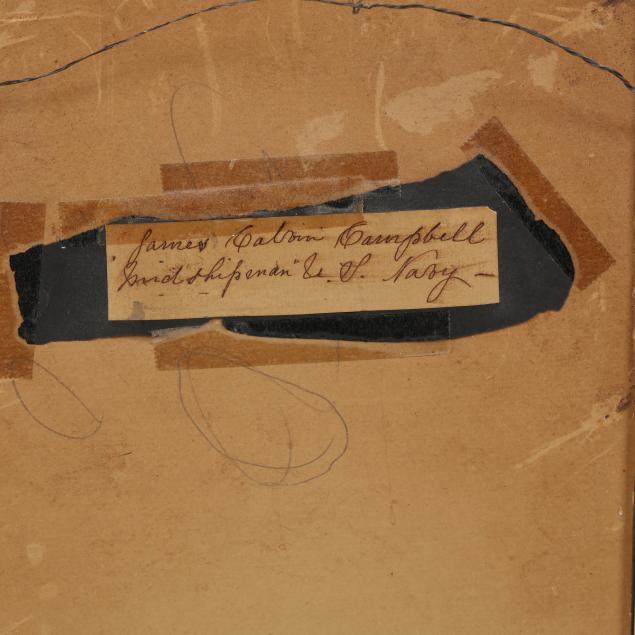 James Calvin Campbell
"Midshipman" U. S. Navy —